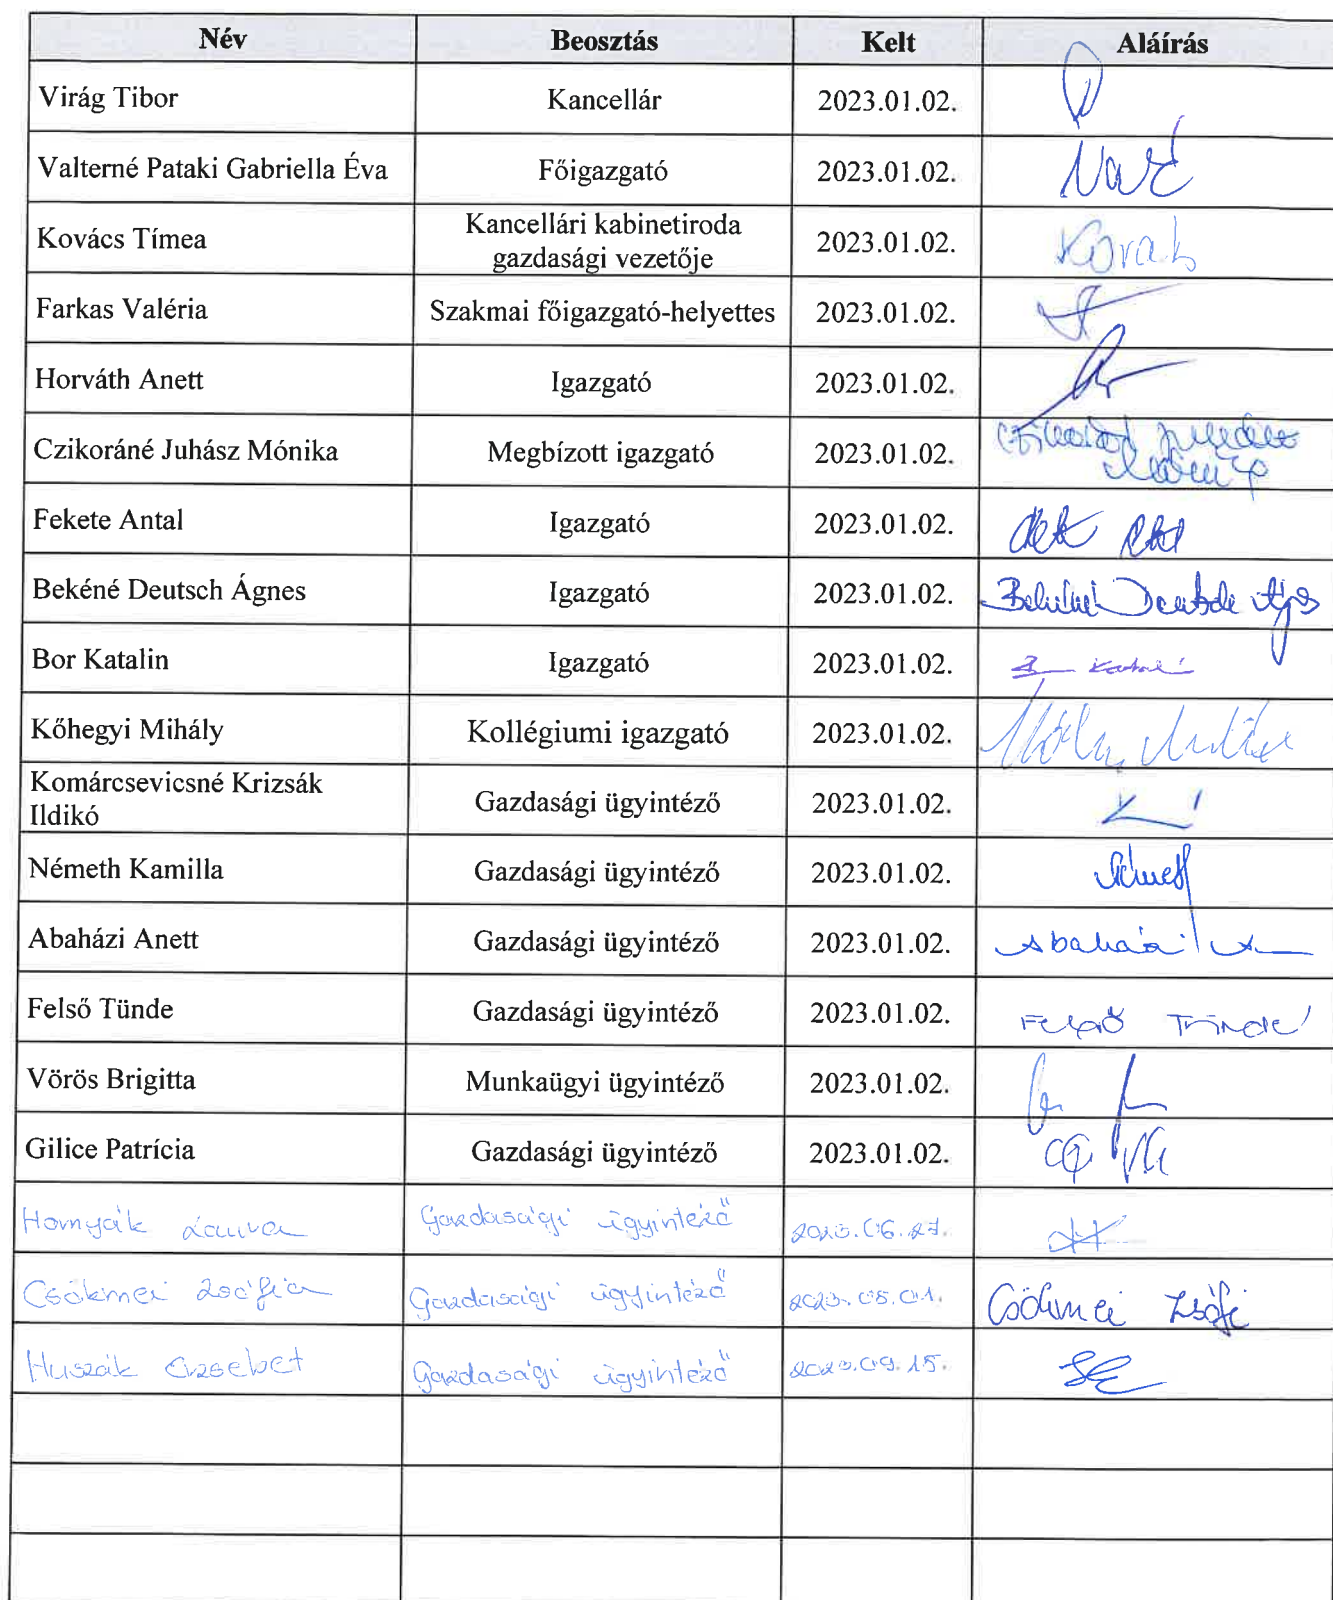 Név Beosztás Kelt Aláírás
Virág Tibor Kancellár 2023.01.02.
Valterné Pataki Gabriella Éva Főigazgató 2023.01.02.
Kovács Tímea Kancellári kabinetiroda gazdasági vezetője 2023.01.02.
Farkas Valéria Szakmai főigazgató-helyettes 2023.01.02.
Horváth Anett Igazgató 2023.01.02.
Czikoráné Juhász Mónika Megbízott igazgató 2023.01.02.
Fekete Antal Igazgató 2023.01.02.
Bekéné Deutsch Ágnes Igazgató 2023.01.02.
Bor Katalin Igazgató 2023.01.02.
Kőhegyi Mihály Kollégiumi igazgató 2023.01.02.
Komárcsevicsné Krizsák
Ildikó Gazdasági ügyintéző 2023.01.02.
Németh Kamilla Gazdasági ügyintéző 2023.01.02.
Abaházi Anett Gazdasági ügyintéző 2023.01.02. Abaházi A
Felső Tünde Gazdasági ügyintéző 2023.01.02. Felső Tünde
Vörös Brigitta Munkaügyi ügyintéző 2023.01.02.
Gilice Patrícia Gazdasági ügyintéző 2023.01.02.
Hornyák Laura Gazdasági ügyintéző 2023.06.27.
Csökmei Zsófia Gazdasági ügyintéző 2023.08.01. Csökmei Zsófi
Huszák Erzsébet Gazdasági ügyintéző 2023.09.15.